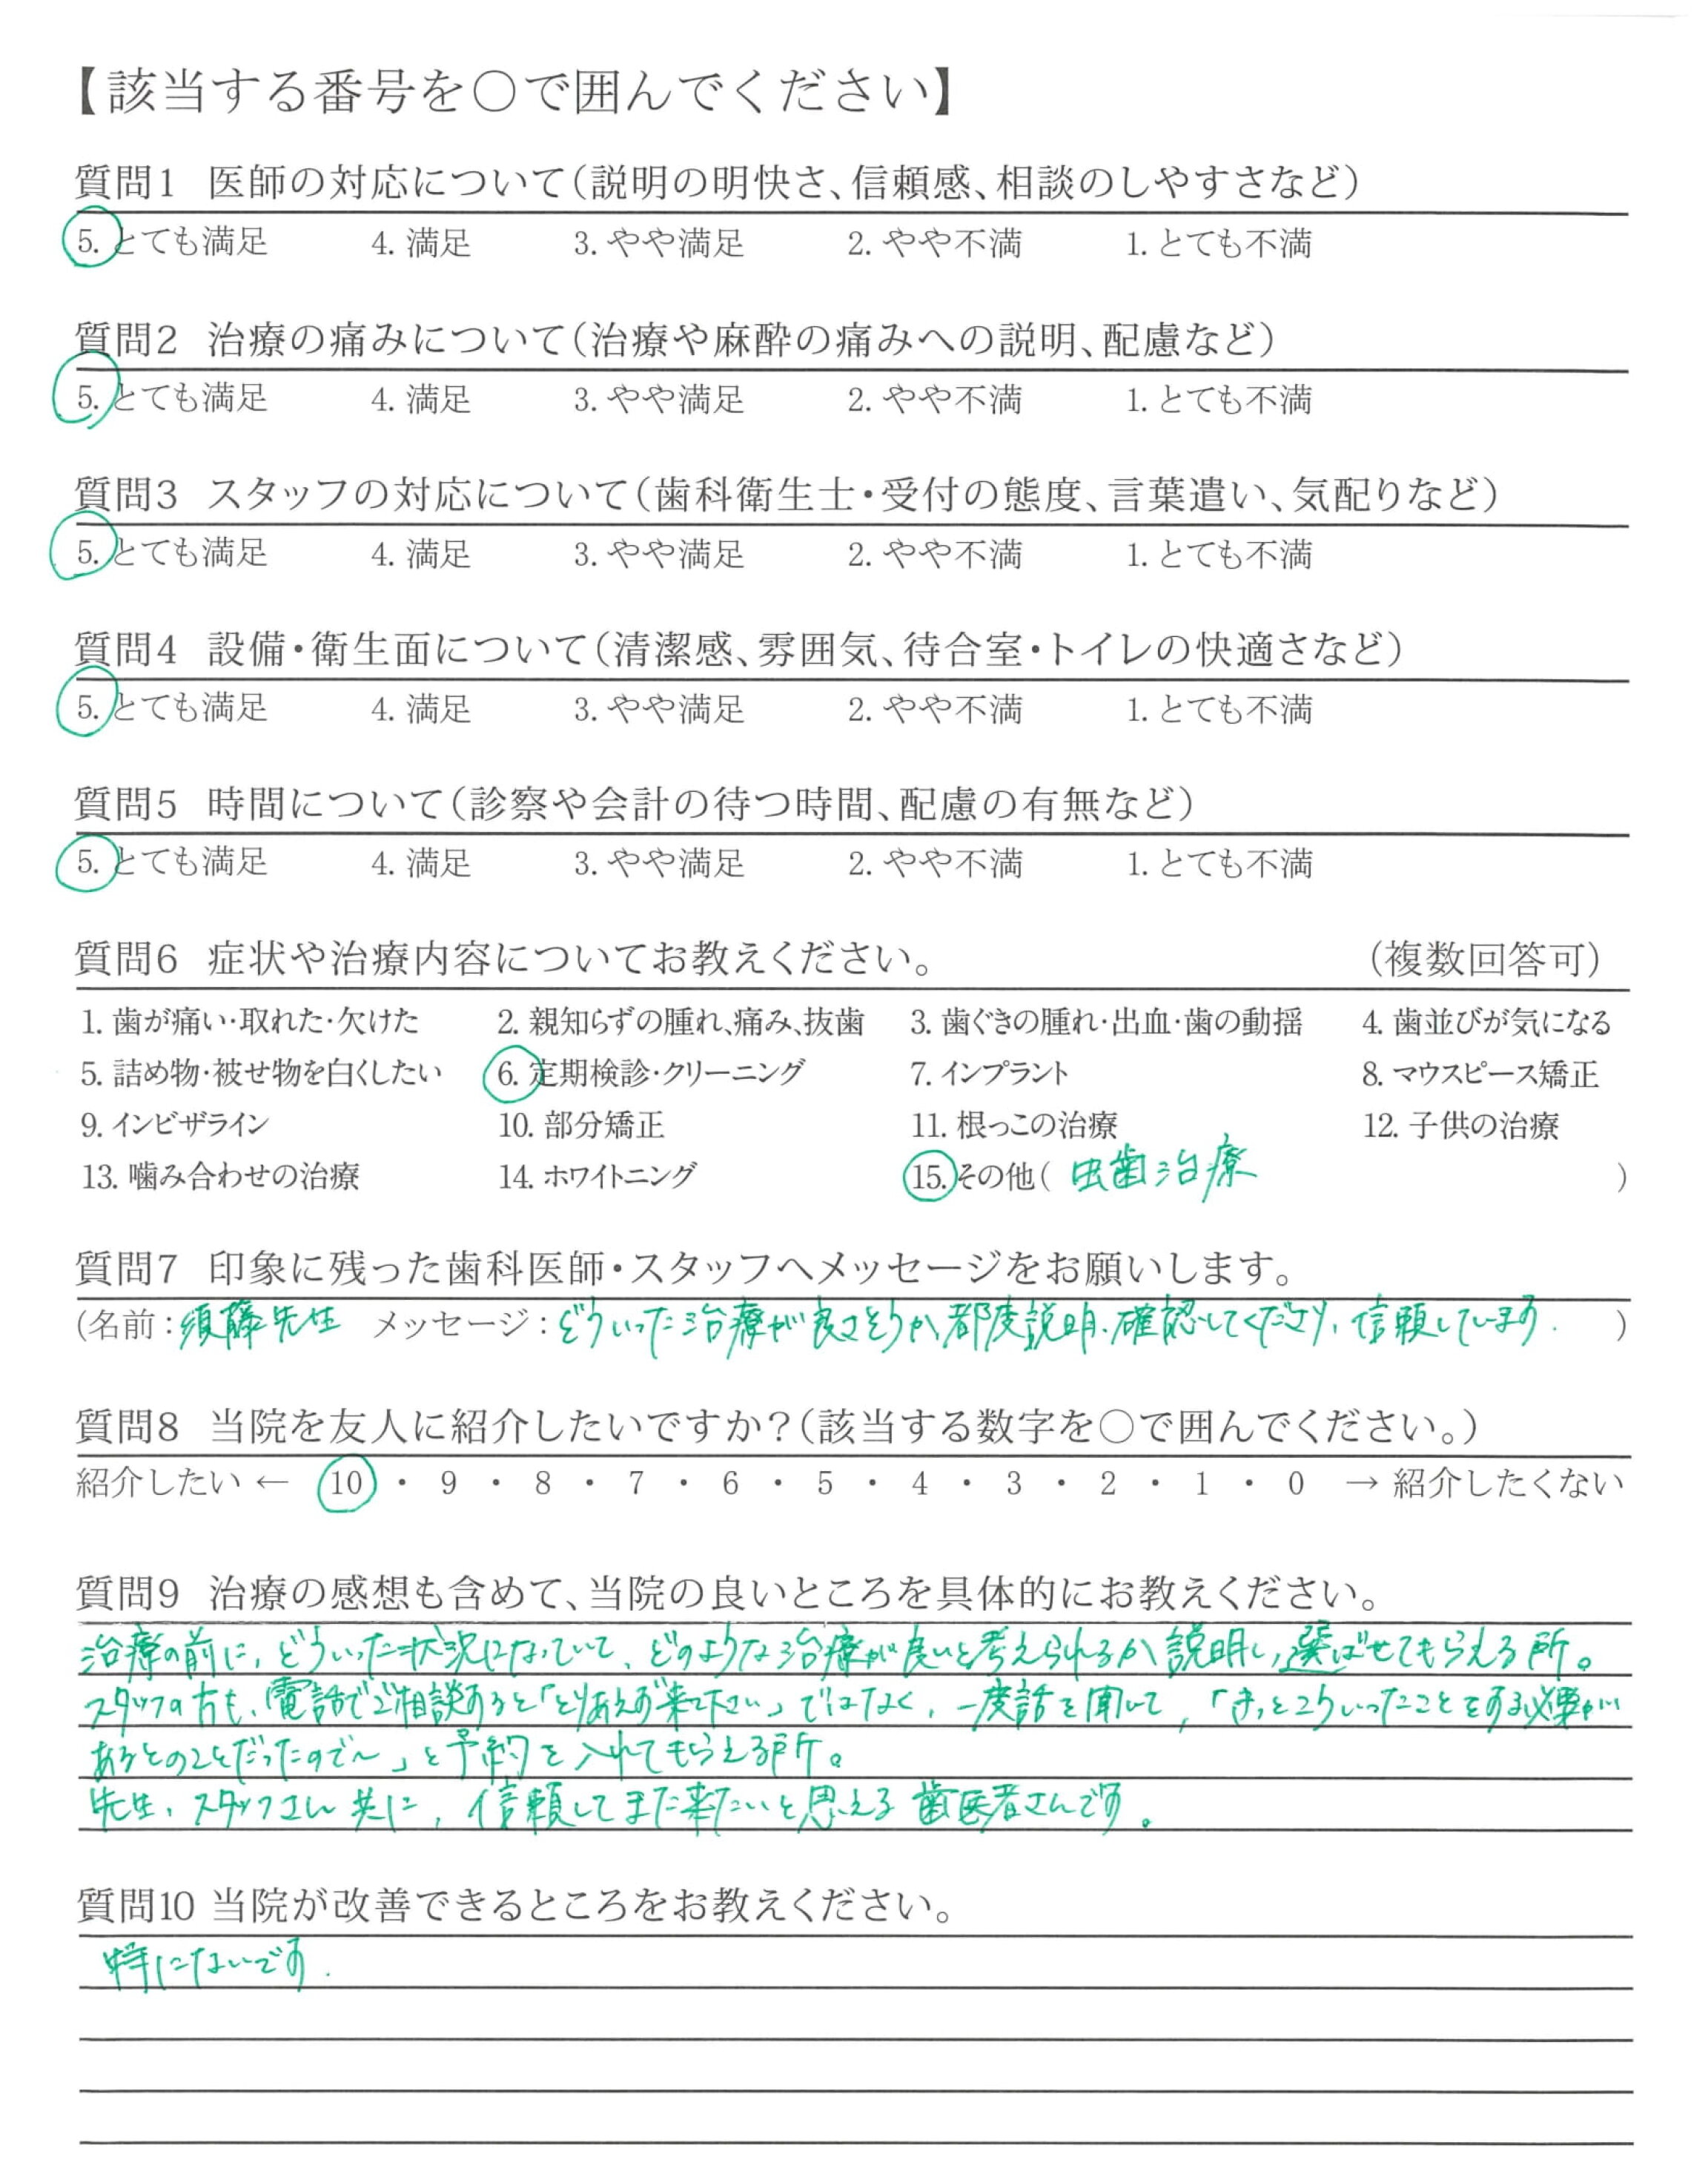 【該当する番号を○で囲んでください】
質問1 医師の対応について（説明の明快さ、信頼感、相談のしやすさなど）
5. とても満足 4. 満足 3. やや満足 2. やや不満 1. とても不満
質問2 治療の痛みについて（治療や麻酔の痛みへの説明、配慮など）
5. とても満足 4. 満足 3. やや満足 2. やや不満 1. とても不満
質問3 スタッフの対応について（歯科衛生士・受付の態度、言葉遣い、気配りなど）
5. とても満足 4. 満足 3. やや満足 2. やや不満 1. とても不満
質問4 設備・衛生面について（清潔感、雰囲気、待合室・トイレの快適さなど）
5. とても満足 4. 満足 3. やや満足 2. やや不満 1. とても不満
質問5 時間について（診察や会計の待つ時間、配慮の有無など）
5. とても満足 4. 満足 3. やや満足 2. やや不満 1. とても不満
質問6 症状や治療内容についてお教えください。 （複数回答可）
1. 歯が痛い・取れた・欠けた 2. 親知らずの腫れ、痛み、抜歯 3. 歯ぐきの腫れ・出血・歯の動揺 4. 歯並びが気になる
5. 詰め物・被せ物を白くしたい 6. 定期検診・クリーニング 7. インプラント 8. マウスピース矯正
9. インビザライン 10. 部分矯正 11. 根っこの治療 12. 子供の治療
13. 噛み合わせの治療 14. ホワイトニング 15. その他（ 虫歯治療 ）
質問7 印象に残った歯科医師・スタッフへメッセージをお願いします。
（名前：須藤先生 メッセージ：どういった治療が良さそうか、都度説明、確認してくださり、信頼しています. ）
質問8 当院を友人に紹介したいですか？（該当する数字を○で囲んでください。）
紹介したい ← 10 ・ 9 ・ 8 ・ 7 ・ 6 ・ 5 ・ 4 ・ 3 ・ 2 ・ 1 ・ 0 → 紹介したくない
質問9 治療の感想も含めて、当院の良いところを具体的にお教えください。
治療の前に、どういった状況になっていて、どのような治療が良いと考えられるか説明し、選ばせてもらえる所。
スタッフの方も、電話でご相談すると「とりあえず来て下さい」ではなく、一度話を聞いて、「きっとこういったことをする必要が
あるとのことだったので～」と予約を入れてもらえる所。
先生、スタッフさん共に、信頼してまた来たいと思える歯医者さんです。
質問10 当院が改善できるところをお教えください。
特にないです.